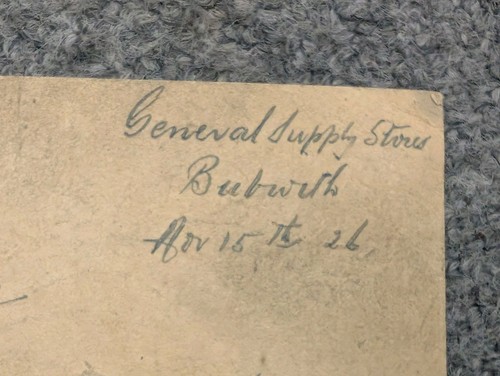 General Supply Stores
Bubwith
Nov 15th 26.